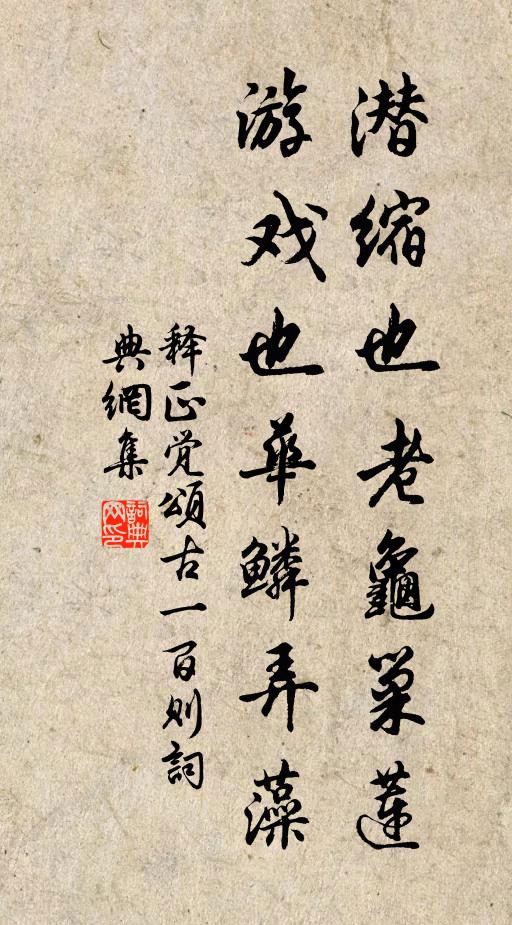 潜缩也老龜巢蓮
游戏也華鱗弄藻
释正觉頌古一百则詞
典網集
詞典网印